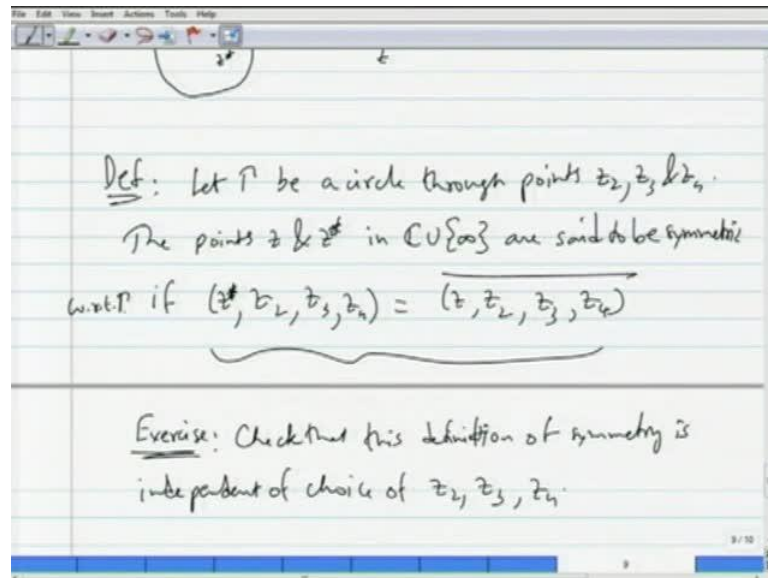 File Edit View Insert Actions Tools Help
z* z
Def: Let Γ be a circle through points z₂, z₃ & z₄.
The points z & z* in ℂ∪{∞} are said to be symmetric
w.r.t. Γ if (z*, z₂, z₃, z₄) = \overline{(z, z₂, z₃, z₄)}
Exercise: Check that this definition of symmetry is
independent of choice of z₂, z₃, z₄.
9/10
9